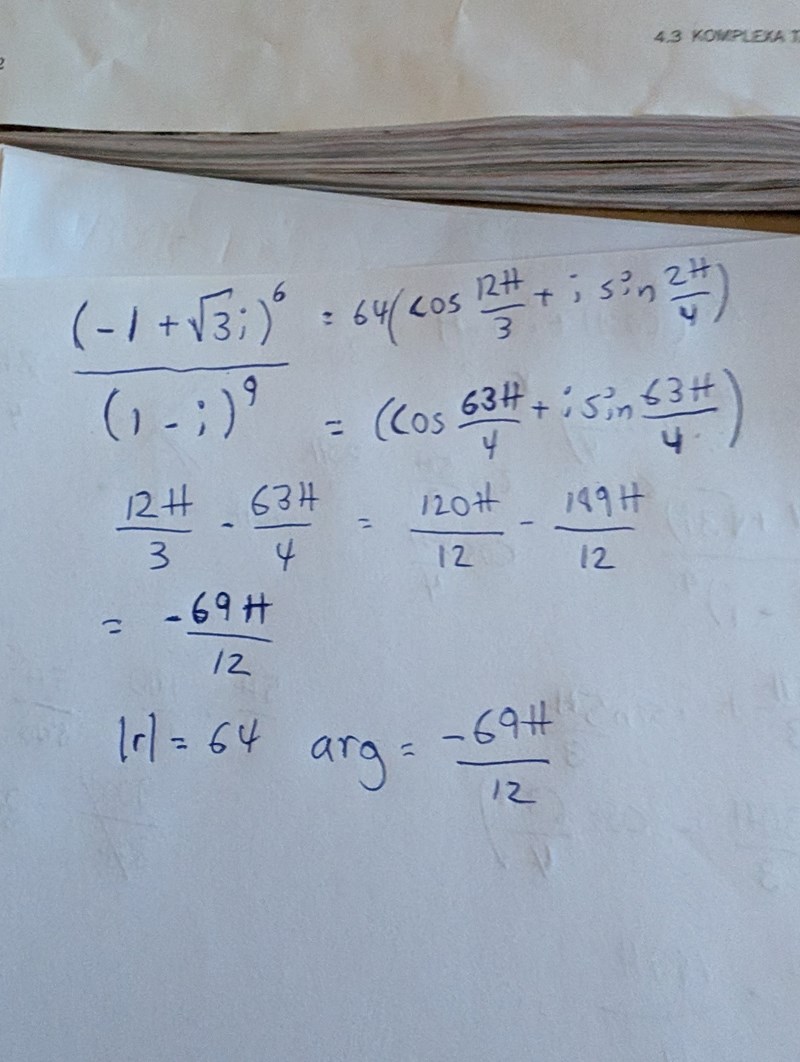 4.3 KOMPLEXA T
2
(-1 + √3i)^6 / (1 - i)^9 = 64(cos 12π/3 + i sin 2π/4)
= (cos 63π/4 + i sin 63π/4)
12π/3 - 63π/4 = 120π/12 - 189π/12
= -69π/12
|r| = 64 arg = -69π/12